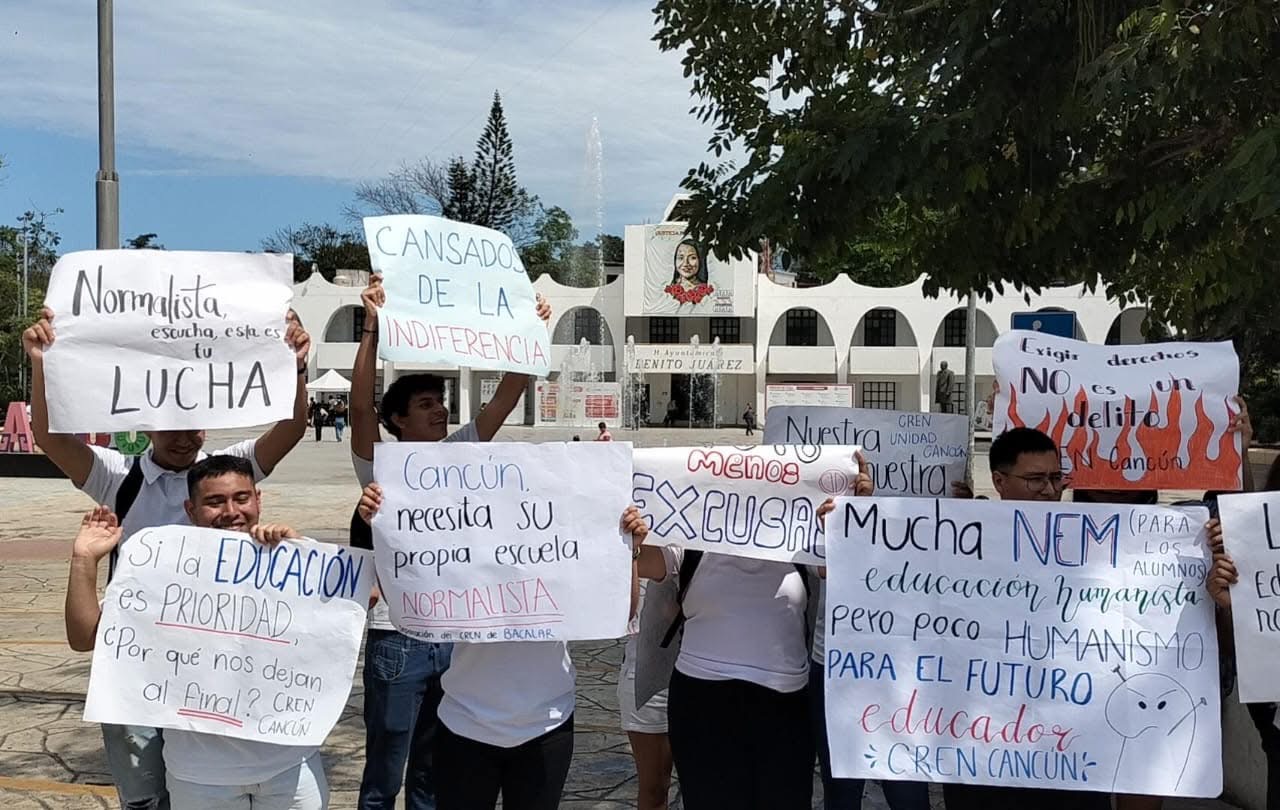 Normalista,
escucha, esta es
tu
LUCHA
CANSADOS
DE LA
INDIFERENCIA
H. Ayuntamiento
BENITO JUÁREZ
Exigir derechos
NO es un
delito
EN Cancún
Nuestra
CREN
UNIDAD
CANCÚN
nuestra
menos
EXCUSA
Cancún,
necesita su
propia escuela
NORMALISTA
del CREN de BACALAR
Si la EDUCACIÓN
es PRIORIDAD,
¿Por qué nos dejan
al final? CREN
CANCÚN
Mucha NEM (PARA
LOS
ALUMNOS)
educación humanista
pero poco HUMANISMO
PARA EL FUTURO
educador
CREN CANCÚN